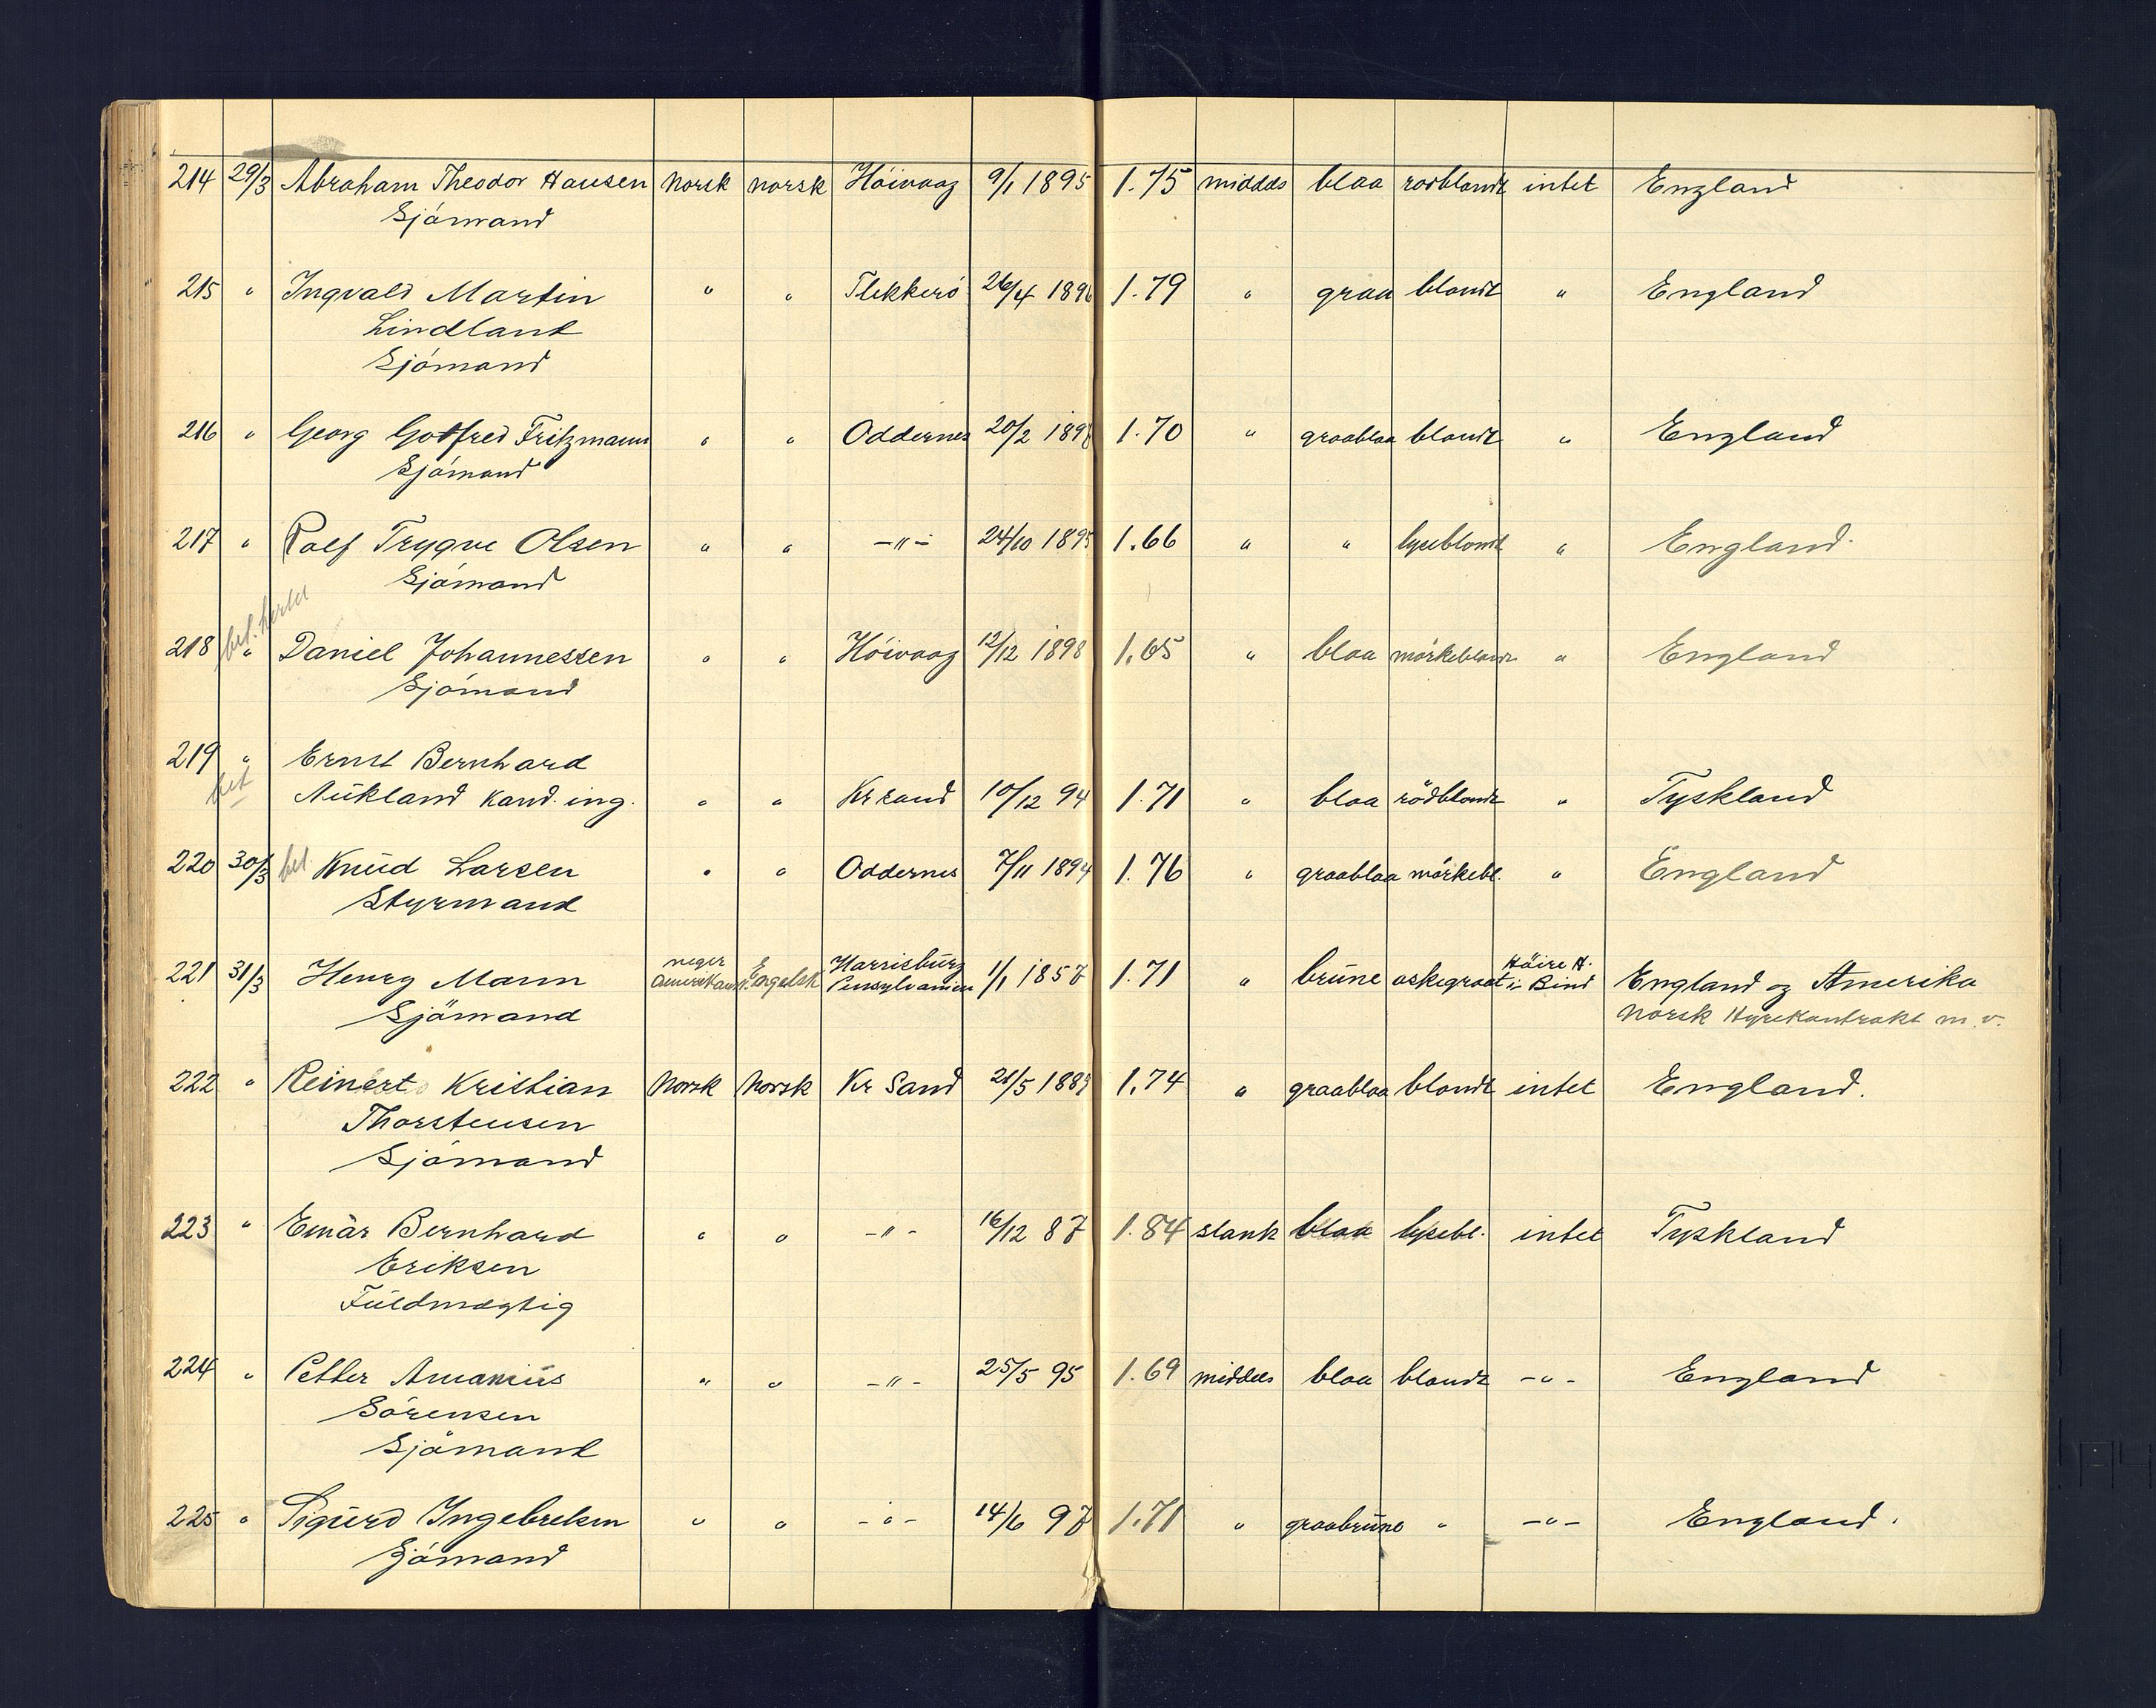 214 29/3 Abraham Theodor Hansen norsk norsk Höivaag 9/1 1895 1.75 middels blaa rødblondt intet England
Sjömand
215 " Ingvald Martin " " Flekkerö 26/4 1896 1.79 " graa blondt " England
Lindland
Sjömand
216 " Georg Gotfred Fritzmann " " Oddernes 20/2 1898 1.70 " graablaa blondt " England
Sjömand
217 " Rolf Trygve Olsen " " -"- 24/10 1895 1.66 " " lyseblondt " England.
Sjömand
bet.
218 " Daniel Johannessen " " Höivaag 12/12 1898 1.65 " blaa mörkeblondt " England
Sjömand
219 " Ernst Bernhard
bet Aükland Kand. ing. " " Kr sand 10/12 94 1.71 " blaa rödblondt " Tyskland
220 30/3 bet Knüd Larsen " " Oddernes 7/11 1894 1.76 " graablaa mörkebl. " England
Styrmand
221 31/3 Henry Mann neger Amerikansk Engelsk Harrisbürg Pensylvanien 1/1 1857 1.71 " brüne askegraat Höire H. i Bind England og Amerika
Sjömand Norsk Hyrekontrakt m.v.
222 " Reinert Kristian Norsk Norsk Kr Sand 21/5 1889 1.74 " graablaa blondt intet England.
Thorstensen
Sjömand
223 " Einar Bernhard " " -"- 16/12 87 1.84 slank blaa lysebl. intet Tyskland
Eriksen
Füldmægtig
224 " Petter Amanius " " -"- 25/5 95 1.69 middels blaa blondt -"- England
Sörensen
Sjömand
225 " Sigürd Ingebretsen " " -"- 14/6 97 1.71 " graabrüne " -"- England.
Sjömand